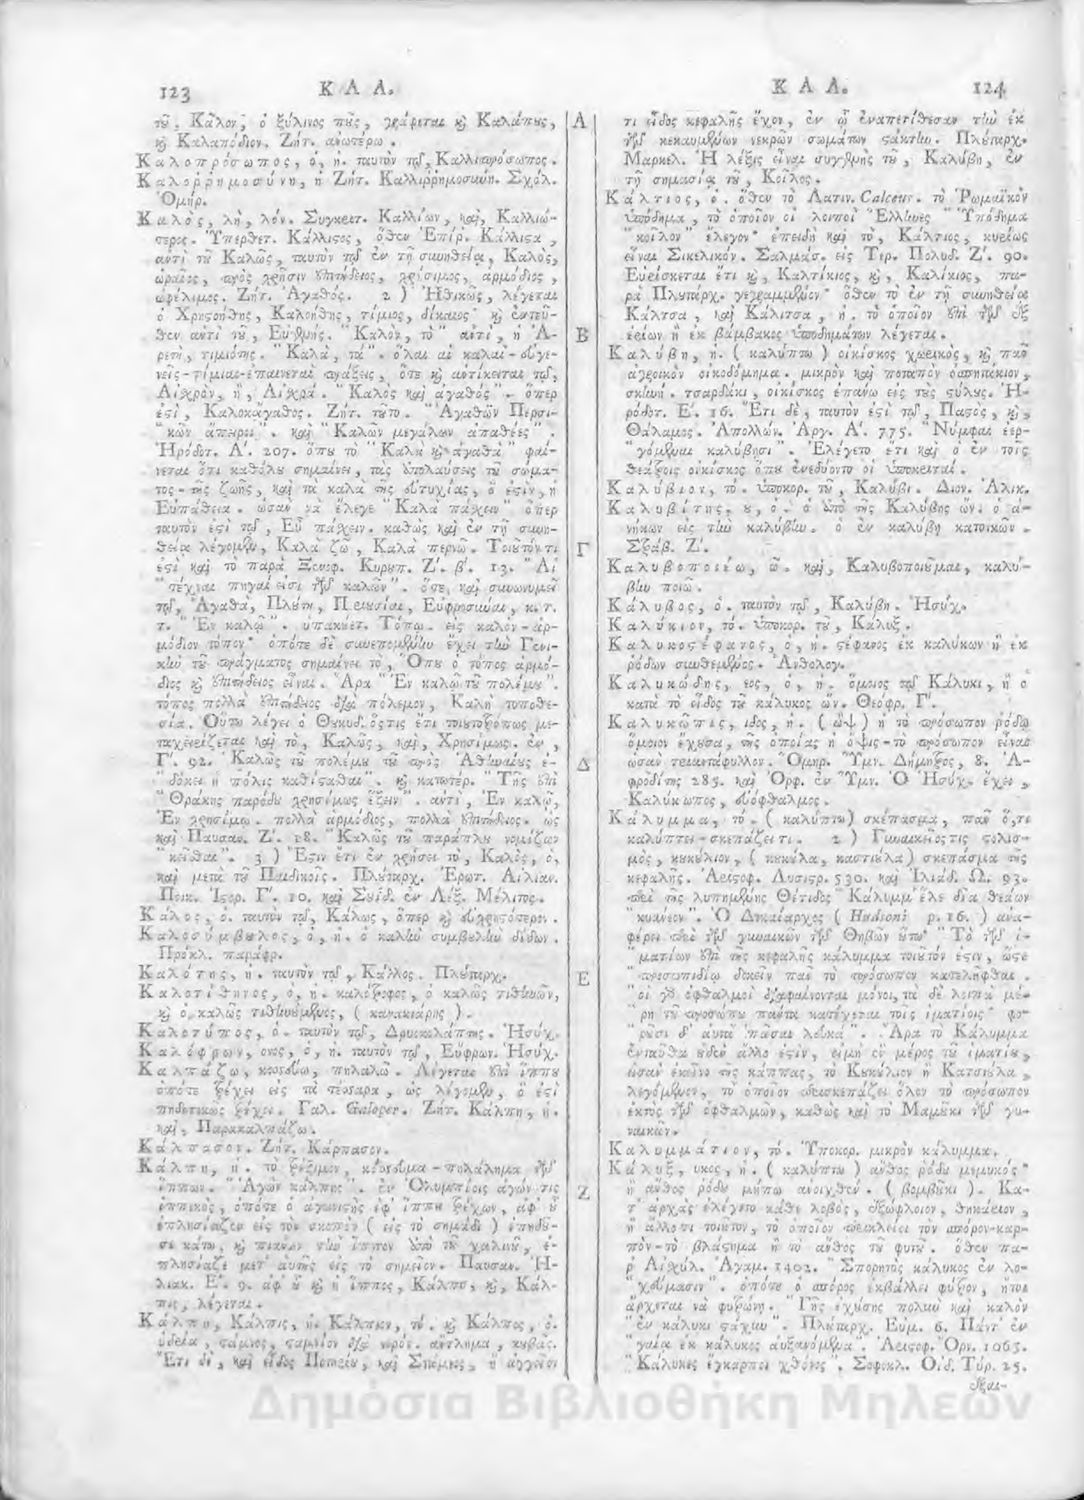 123 Κ Α Λ.
τȣ͂, Κᾶλον, ὁ ξύλινος πȣ̃ς, γράφεται ϗ Καλάπȣς,
ϗ Καλαπόδιον. Ζήτ. ἀνωτέρω.
Καλοπρόσωπος, ὁ, ἡ. ταυτὸν τῷ, Καλλιπρόσωπος.
Καλοῤῥημοσύνη, ἡ Ζήτ. Καλλιῤῥημοσύνη. Σχόλ.
Ὁμήρ.
Καλὸς, λὴ, λόν. Συγκειτ. Καλλίων, καὶ, Καλλιώ-
τερος. Ὑπερθετ. Κάλλιστος, ὅθεν Ἐπίρ. Κάλλιστα,
ἀντὶ τȣ͂ Καλῶς, ταυτὸν τῷ ἐν τῇ συνηθείᾳ, Καλὸς,
ὡραῖος, πρὸς χρῆσιν ἐπιτήδειος, χρήσιμος, ἁρμόδιος,
ὠφέλιμος. Ζήτ. Ἀγαθός. 2 ) Ἠθικῶς, λέγεται
ὁ Χρηστοήθης, Καλοήθης, τίμιος, δίκαιος ϗ ἐντεῦ-
θεν ἀντὶ τȣ͂, Εὐγενής. "Καλὸν, τὸ" ἀντὶ, ἡ Ἀ-
ρετὴ, τιμιότης. "Καλὰ, τὰ". ὅλαι αἱ καλαὶ-εὐγε-
νεῖς-τίμιαι-ἐπαινεταὶ πράξεις, ὅτε ϗ ἀντίκειται τῷ,
Αἰσχρὸν, ἢ, Αἰσχρά. "Καλὸς καὶ ἀγαθὸς". ὅπερ
ἐστὶ, Καλοκάγαθος. Ζήτ. τȣ͂το. "Ἀγαθῶν Περσι-
"κῶν ἄπειροι". καὶ "Καλῶν μεγάλων ἀπαθέες".
Ἡρόδοτ. Α΄. 207. ὅπȣ τὸ "Καλὰ ϗ ἀγαθὰ" φαί-
νεται ὅτι καθόλȣ σημαίνει, τὰς ἀπολαύσεις τȣ͂ σώμα-
τος-τῆς ζωῆς, καὶ τὰ καλὰ τῆς εὐτυχίας, ὅ ἐστιν, ἡ
Εὐπάθεια. ὡσὰν νὰ ἔλεγε "Καλὰ πάχειν" ὅπερ
ταυτὸν ἐστὶ τῷ, Εὖ πάχειν. καθὼς καὶ ἐν τῇ συνη-
θείᾳ λέγομεν, Καλὰ ζῶ, Καλὰ περνῶ. Τοιȣ͂τόν τι
ἐστὶ καὶ τὸ παρὰ Ξενοφ. Κυρȣπ. Ζ΄. β΄. 13. "Αἱ
τ. "Ἐν καλῷ". ὑπακȣετ. Τόπῳ. εἰς καλὸν-ἁρ-
μόδιον τόπον· ὁπότε δὲ συνεπομένην ἔχει τὴν Γενι-
κὴν τȣ͂ πράγματος σημαίνει τὸ, Ὅπȣ ὁ τόπος ἁρμό-
διος ϗ ἐπιτήδειος εἶναι. Ἄρα "Ἐν καλῷ τȣ͂ πολέμȣ".
τόπος πολλὰ ἐπιτήδειος διὰ πόλεμον, Καλὴ τοποθε-
σία. Οὕτω λέγει ὁ Θȣκυδ. ὅστις ἔτι τοιȣτοτρόπως με-
ταχειρίζεται καὶ τὸ, Καλῶς, καὶ, Χρησίμως. ἐν,
Γ΄. 92. "Καλῶς τȣ͂ πολέμȣ τȣ͂ πρὸς Ἀθηναίȣς ἐ-
"δόκει ἡ πόλις καθίστασθαι". ϗ κατωτέρ. "Τῆς ἐπὶ
"Θράκης παρόδȣ χρησίμως ἕξειν". ἀντὶ, Ἐν καλῷ,
Ἐν χρησίμῳ. πολλὰ ἁρμόδιος, πολλὰ ἐπιτήδειος. ὡς
καὶ Παυσαν. Ζ΄. 18. "Καλῶς τȣ͂ παράπλȣ νομίζων
"κεῖσθαι". 3 ) Ἔστιν ἔτι ἐν χρήσει τὸ, Καλὸς, ὁ,
καὶ μετὰ τȣ͂ Παιδικοῖς. Πλȣταρχ. Ἐρωτ. Αἰλιαν.
Ποικ. Ἱστορ. Γ΄. 10. καὶ Σȣΐδ. ἐν Λέξ. Μέλιτος.
Κάλος, ὁ. ταυτὸν τῷ, Κάλως, ὅπερ ϗ εὐχρηστότερον.
Καλοσύμβȣλος, ὁ, ἡ. ὁ καλὴν συμβȣλὴν δίδων.
Πρόκλ. παράφρ.
Καλότης, ἡ. ταυτὸν τῷ, Κάλλος. Πλȣταρχ.
Καλοτίθηνος, ὁ, ἡ. καλότροφος, ὁ καλῶς τιθηνῶν,
ϗ ὁ καλῶς τιθηνȣμενος, ( κανακιάρης ).
Καλοτύπος, ὁ. ταυτὸν τῷ, Δρυοκολάπτης. Ἡσύχ.
Καλόφρων, ονος, ὁ, ἡ. ταυτὸν τῷ, Εὔφρων. Ἡσύχ.
πηδητικῶς τρέχει. Γαλ. Galoper. Ζήτ. Κάλπη, ἡ.
καὶ, Παρακαλπάζω.
Κάλπασον. Ζήτ. Κάρπασον.
ἵππων. "Ἀγὼν κάλπης". ἐν Ὀλυμπίοις ἀγών τις
ἱππικὸς, ὁπότε ὁ ἀγωνιστὴς ἐφ᾽ ἵππȣ τρέχων, ἀφ᾽ ȣ̃
ἐπλησίαζεν εἰς τὸν σκοπὸν ( εἰς τὸ σημάδι ) ἐπηδȣ͂-
σε κάτω, ϗ πιάνων τὸν ἵππον ἀπὸ τȣ͂ χαλινȣ͂, ἐ-
πλησίαζε μετ᾽ αὐτῆς εἰς τὸ σημεῖον. Παυσαν. Ἠ-
λιακ. Ε΄. 9. ἀφ᾽ ȣ̃ ϗ ἡ ἵππος, Κάλπη, ϗ, Κάλ-
πις, λέγεται.
Κάλπη, Κάλπις, ἡ. Κάλπην, τὸ. ϗ Κάλπος, ὁ.
ὑδρία, στάμνος, σταμνίον διὰ νερόν. ἄντλημα, κȣβᾶς.
Α
Β
Γ
Δ
Ε
Ζ
Κ Α Λ. 124
τι εἶδος κεφαλῆς ἔχον, ἐν ᾧ ἐναπετίθεσαν τὴν ἐκ
τῶν κεκαυμένων νεκρῶν σωμάτων στάκτην. Πλȣταρχ.
Μαρκελ. Ἡ λέξις εἶναι συγγενὴς τȣ͂, Καλύβη, ἐν
τῇ σημασίᾳ τȣ͂, Κοῖλος.
Κάλτιος, ὁ. ὅθεν τὸ Λατιν. Calceus. τὸ Ῥωμαϊκὸν
ὑπόδημα, τὸ ὁποῖον οἱ λοιποὶ Ἕλληνες "Ὑπόδημα
"κοῖλον" ἔλεγον· ἐπειδὴ καὶ τὸ, Κάλτιος, κυρίως
εἶναι Σικελικόν. Σαλμάσ. εἰς Τερ. Πολυδ. Ζ΄. 90.
Εὑρίσκεται ἔτι ϗ, Καλτίκιος, ϗ, Καλίκιος, πα-
ρὰ Πλȣταρχ. γεγραμμένον· ὅθεν τὸ ἐν τῇ συνηθείᾳ
Κάλτσα, καὶ Κάλιτσα, ἡ. τὸ ὁποῖον ἐπὶ τῶν ἐξ
ἐρίων ἢ ἐκ βάμβακος ὑποδημάτων λέγεται.
Καλύβη, ἡ. ( καλύπτω ) οἰκίσκος χωρικὸς, ϗ πᾶν
ἀγροικὸν οἰκοδόμημα. μικρὸν καὶ ποταπὸν ὁσπητάκιον,
σκηνή. τσαρδάκι, οἰκίσκος ἐπάνω εἰς τȣ̀ς στύλȣς. Ἡ-
ρόδοτ. Ε΄. 16. Ἔτι δὲ, ταυτὸν ἐστὶ τῷ, Παστὸς, ϗ,
Θάλαμος. Ἀπολλών. Ἀργ. Α΄. 775. "Νύμφαι ἐερ-
"γόμεναι καλύβησι". Ἐλέγετο ἔτι καὶ ὁ ἐν τοῖς
θεάτροις οἰκίσκος ὅπȣ ἐνεδύοντο οἱ ὑποκριταί.
Καλύβιον, τό. ὑποκορ. τȣ͂, Καλύβι. Διον. Ἁλικ.
Καλυβίτης, ȣ, ὁ. ὁ ἀπὸ τῆς Καλύβης ὤν. ὁ ἀ-
νήκων εἰς τὴν καλύβην. ὁ ἐν καλύβῃ κατοικῶν.
Στράβ. Ζ΄.
Καλυβοποιέω, ῶ. καὶ, Καλυβοποιȣ͂μαι, καλύ-
βην ποιῶ.
Κάλυβος, ὁ. ταυτὸν τῷ, Καλύβη. Ἡσύχ.
Καλύκιον, τό. ὑποκορ. τȣ͂, Κάλυξ.
Καλυκοστέφανος, ὁ, ἡ. στέφανος ἐκ καλύκων ἢ ἐκ
ῥόδων συνθεμένος. Ἀνθολογ.
Καλυκώδης, εος, ὁ, ἡ. ὅμοιος τῷ Κάλυκι, ἢ ὁ
κατὰ τὸ εἶδος τȣ͂ κάλυκος ὤν. Θεόφρ. Γ΄.
Καλυκῶπις, ιδος, ἡ. ( ὤψ ) ἡ τὸ πρόσωπον ῥόδῳ
ὅμοιον ἔχȣσα, τῆς ὁποίας ἡ ὄψις-τὸ πρόσωπον εἶναι
ὡσὰν τριαντάφυλλον. Ὅμηρ. Ὕμν. Δήμητρος, 8. Ἀ-
φροδίτης 285. καὶ Ὀρφ. ἐν Ὕμν. Ὁ Ἡσύχ. ἔχει,
Καλύκωπος, εὐόφθαλμος.
Κάλυμμα, τό. ( καλύπτω ) σκέπασμα, πᾶν ὅ,τι
καλύπτει-σκεπάζει τι. 2 ) Γυναικεῖός τις στολισ-
μός, κȣκύλιον, ( κȣκύλα, κατσιύλα ) σκέπασμα τῆς
κεφαλῆς. Ἀριστοφ. Λυσιστρ. 530. καὶ Ἰλιάδ. Ω. 93.
περὶ τῆς λυπημένης Θέτιδος "Κάλυμμ᾽ ἕλε δῖα θεάων
"κυάνεον". Ὁ Δικαίαρχος ( Hudsoni p. 16. ) ἀνα-
φέρει περὶ τῶν γυναικῶν τῶν Θηβῶν ȣ̔́τω "Τὸ τῶν ἱ-
"ματίων ἐπὶ τῆς κεφαλῆς κάλυμμα τοιȣ͂τόν ἐστιν, ὥστε
"προσωπιδίῳ δοκεῖν πᾶν τὸ πρόσωπον κατειλῆφθαι.
"οἱ γὰρ ὀφθαλμοὶ διαφαίνονται μόνοι, τὰ δὲ λοιπὰ μέ-
"ρη τȣ͂ προσώπȣ πάντα κατέχεται τοῖς ἱματίοις· φο-
"ρȣ͂σι δ᾽ αὐτὰ πᾶσαι λευκά". Ἄρα τὸ Κάλυμμα
ἐνταῦθα ȣ̓δὲν ἄλλο ἐστὶν, εἰμὴ ἓν μέρος τȣ͂ ἱματίȣ,
ὡσὰν ἐκεῖνο τῆς κάππας, τὸ Κȣκύλιον ἢ Κατσιύλα,
λεγόμενον, τὸ ὁποῖον περισκεπάζει ὅλον τὸ πρόσωπον
ἐκτὸς τῶν ὀφθαλμῶν, καθὼς καὶ τὸ Μαμȣκι τῶν γυ-
ναικῶν.
Καλυμμάτιον, τό. Ὑποκορ. μικρὸν κάλυμμα.
Κάλυξ, υκος, ἡ. ( καλύπτω ) ἄνθος ῥόδȣ μεμυκός·
ἢ ἄνθος ῥόδȣ μήπω ἀνοιχθέν. ( βομβȣκι ). Κα-
τ᾽ ἀρχὰς ἐλέγετο κάθε λοβὸς, ἐξώφλοιον, θηκάριον,
ἢ ἄλλο τι τοιȣ͂τον, τὸ ὁποῖον περικλείει τὸν σπόρον-καρ-
πὸν-τὸ βλάστημα ἢ τὸ ἄνθος τȣ͂ φυτȣ͂. ὅθεν πα-
ρ᾽ Αἰσχύλ. Ἀγαμ. 1402. "Σπορητὸς κάλυκος ἐν λο-
"χεύμασιν". ὁπότε ὁ σπόρος ἐκβάλλει φύτρον, ἤτοι
ἄρχεται νὰ φυτρώνῃ. "Γῆς ἐχύσης πολὺν καὶ καλὸν
"ἐν κάλυκι στάχυν". Πλȣταρχ. Εὐμ. 6. Πάντ᾽ ἐν
"γαίᾳ ἐκ κάλυκος αὐξανόμενα". Ἀριστοφ. Ὀρν. 1065.
"Κάλυκες ἔγκαρποι χθονός". Σοφοκλ. Οἰδ. Τύρ. 25.
Δημόσια Βιβλιοθήκη Μηλεών